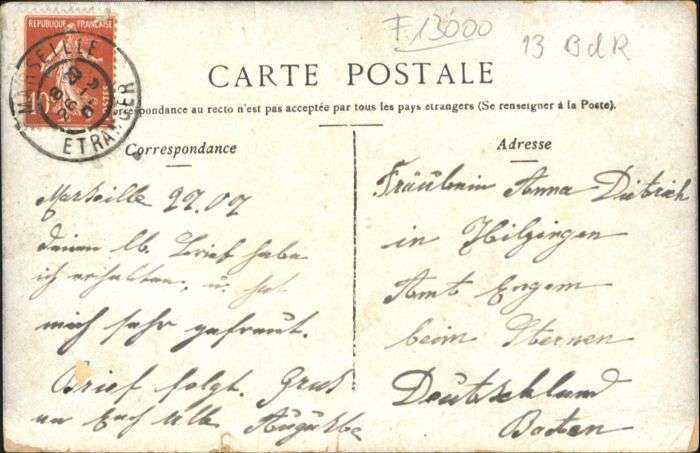 REPUBLIQUE FRANÇAISE
10
POSTES
MARSEILLE
ETRANGER
F 13000
13 B d R
CARTE POSTALE
respondance au recto n'est pas acceptée par tous les pays etrangers (Se renseigner à la Poste).
Correspondance
Marseille 22.07
deinen lb. Brief habe
ich erhalten, u. hat
mich sehr gefreut.
Brief folgt. Grus
an Euch Alle Augustte
Adresse
Fräulein Anna Dietrich
in Hilzingen
Amt Engem
beim Sternen
Deutschland
Baden